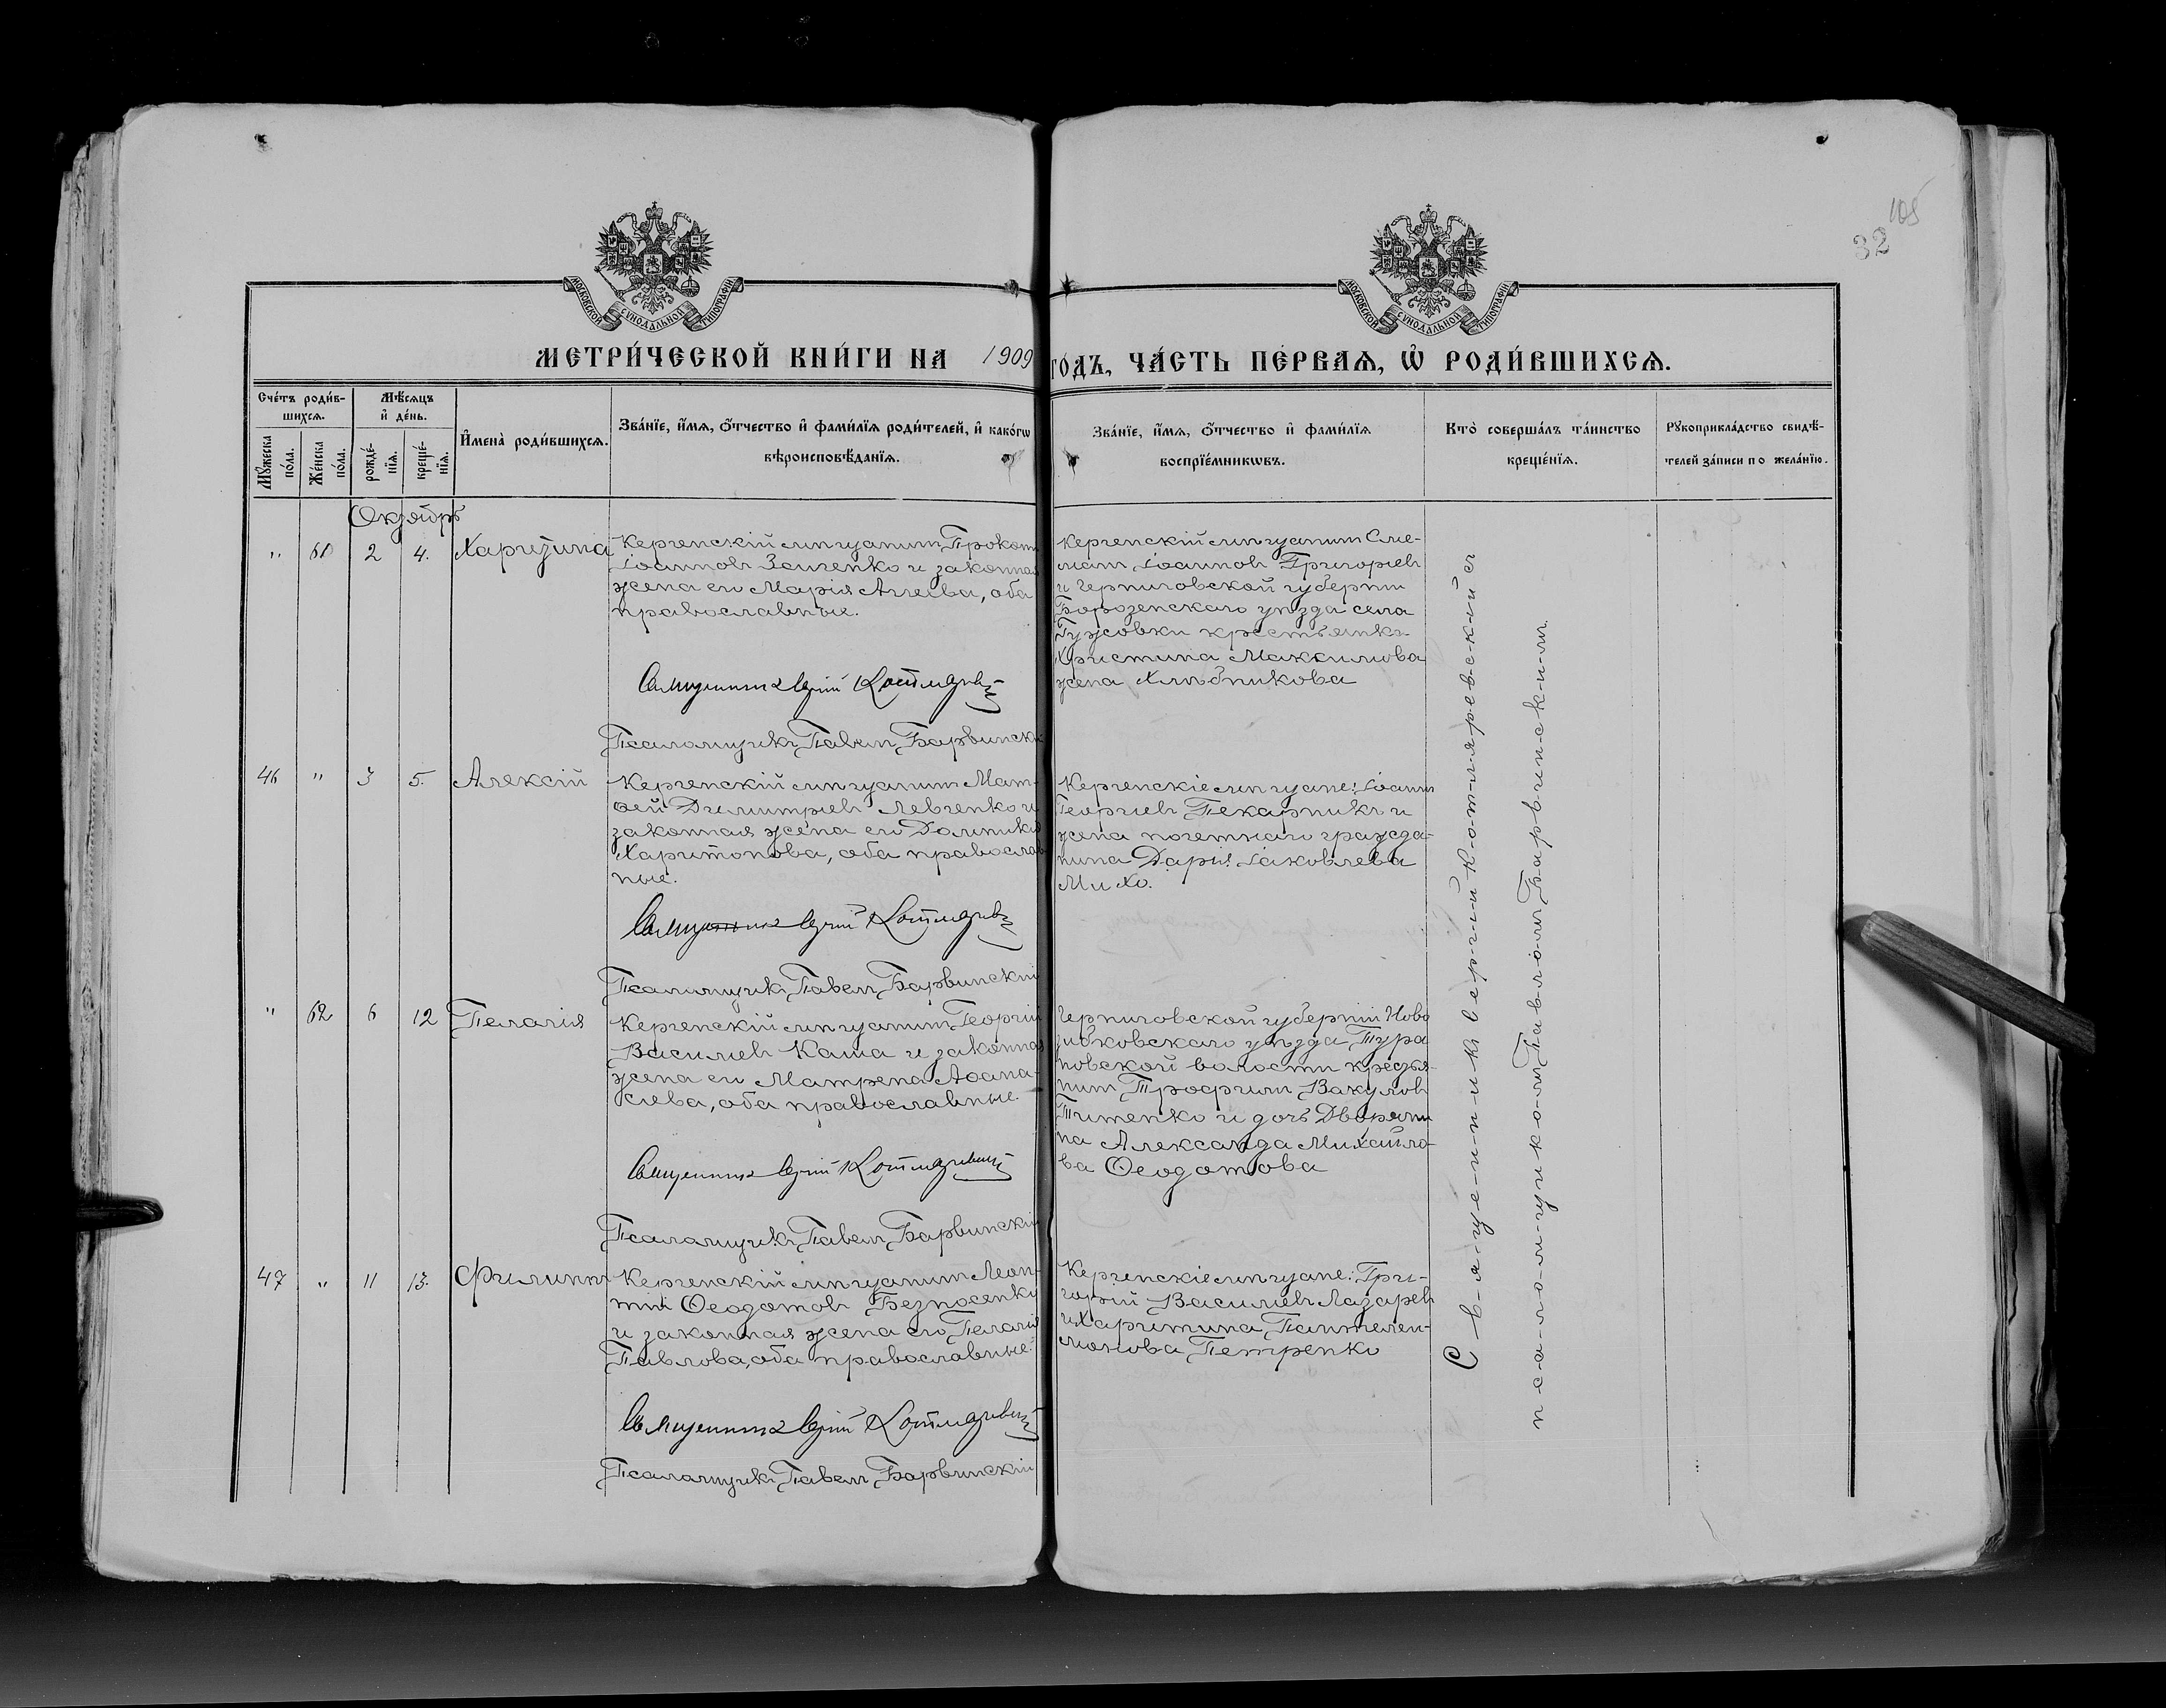 105
32
МОСКОВСКОЙ СУНОДАЛЬНОЙ ТИПОГРАФІИ
МОСКОВСКОЙ СУНОДАЛЬНОЙ ТИПОГРАФІИ
МЕТРИ́ЧЕСКОЙ КНИ́ГИ НА 1909 ГО́ДЪ, ЧА́СТЬ ПЕ́РВАѦ, Ѡ҆ РОДИ́ВШИХСѦ.
Сче́тъ роди́в-
шихсѧ.
Мꙋ́жеска по́ла.
Же́нска по́ла.
Мѣ́сѧцъ
и҆ де́нь.
рожде́-
нїѧ.
креще́-
нїѧ.
И҆мена̀ роди́вшихсѧ.
Зва́нїе, и҆́мѧ, ѻ҆́тчество и҆ фами́лїѧ роди́телей, и҆ како́гѡ
вѣроисповѣ́данїѧ.
Зва́нїе, и҆́мѧ, ѻ҆́тчество и҆ фами́лїѧ
воспрїе́мникѡвъ.
Кто̀ соверша́лъ та́инство
креще́нїѧ.
Рꙋкоприкла́дство свидѣ́-
телей за́писи по жела́нїю.
Октябрь
" 61 2 4. Харитина
Керченскій мѣщанинъ Прокопій
Іоанновъ Заиченко и законная
жена его Марія Аггеева, оба
православные.
Священникъ Сергій Котляревскій
Псаломщикъ Павелъ Барвинскій
Керченскій мѣщанинъ Сте-
фанъ Іоанновъ Григорьевъ
и Черниговской губерніи
Борозенскаго уѣзда села
Гужовки крестьянка
Христина Максимова
жена Хлѣбникова
46 " 3 5. Алексій
Керченскій мѣщанинъ Мат-
ѳей Димитріевъ Левченко и
законная жена его Домникія
Харитонова, оба православ-
ные.
Священникъ Сергій Котляревскій
Псаломщикъ Павелъ Барвинскій
Керченскіе мѣщане: Іоаннъ
Георгіевъ Пекарникъ и
жена почетнаго гражда-
нина Дарія Іаковлева
Михо.
" 62 6 12 Пелагія
Керченскій мѣщанинъ Георгій
Василіевъ Каша и законная
жена его Матрена Аѳана-
сіева, оба православные.
Священникъ Сергій Котляревскій
Псаломщикъ Павелъ Барвинскій
Черниговской губерніи Ново
зибковскаго уѣзда Тура
новской волости крестья-
нинъ Трофимъ Вакуловъ
Титенко и дочь Дворяни
на Александа Михаило-
ва Ѳеодотова
47 " 11 13. Филиппъ
Керченскій мѣщанинъ Леон-
тій Ѳеодотовъ Безносенко
и законная жена его Пелагія
Павлова, оба православные.
Священникъ Сергій Котляревскій
Псаломщикъ Павелъ Барвинскій
Керченскіе мѣщане: Гри-
горій Василіевъ Лазаревъ
и Харитина Пантелеи-
монова Петренко
С-в-я-щ-е-н-н-и-к-ъ С-е-р-г-і-й К-о-т-л-я-р-е-в-с-к-і-й съ
п-с-а-л-о-м-щ-и-к-о-мъ П-а-в-л-о-мъ Б-а-р-в-и-н-с-к-и-мъ.